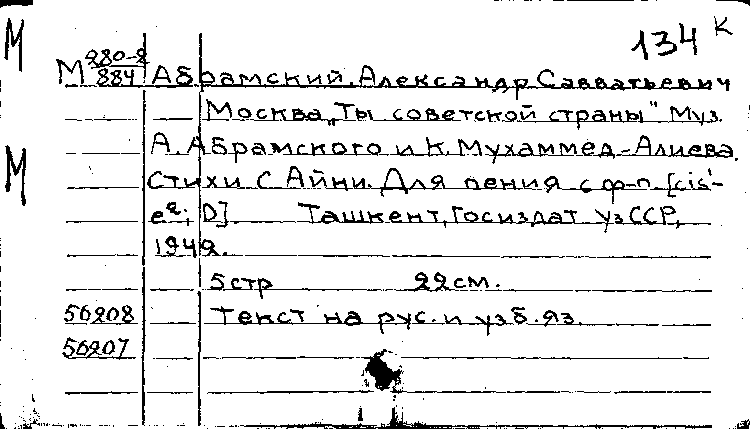 М
134 К
М 280-2
884 Абрамский, Александр Савватьевич
Москва „Ты советской страны" Муз.
А. Абрамского и К. Мухаммед-Алиева.
М
Стихи С Айни. Для пения с ф-п. [cis'-
e²; D]. Ташкент, Госиздат УзССР,
1942.
5 стр 22 см.
56208 Текст на рус. и узб. яз.
56207